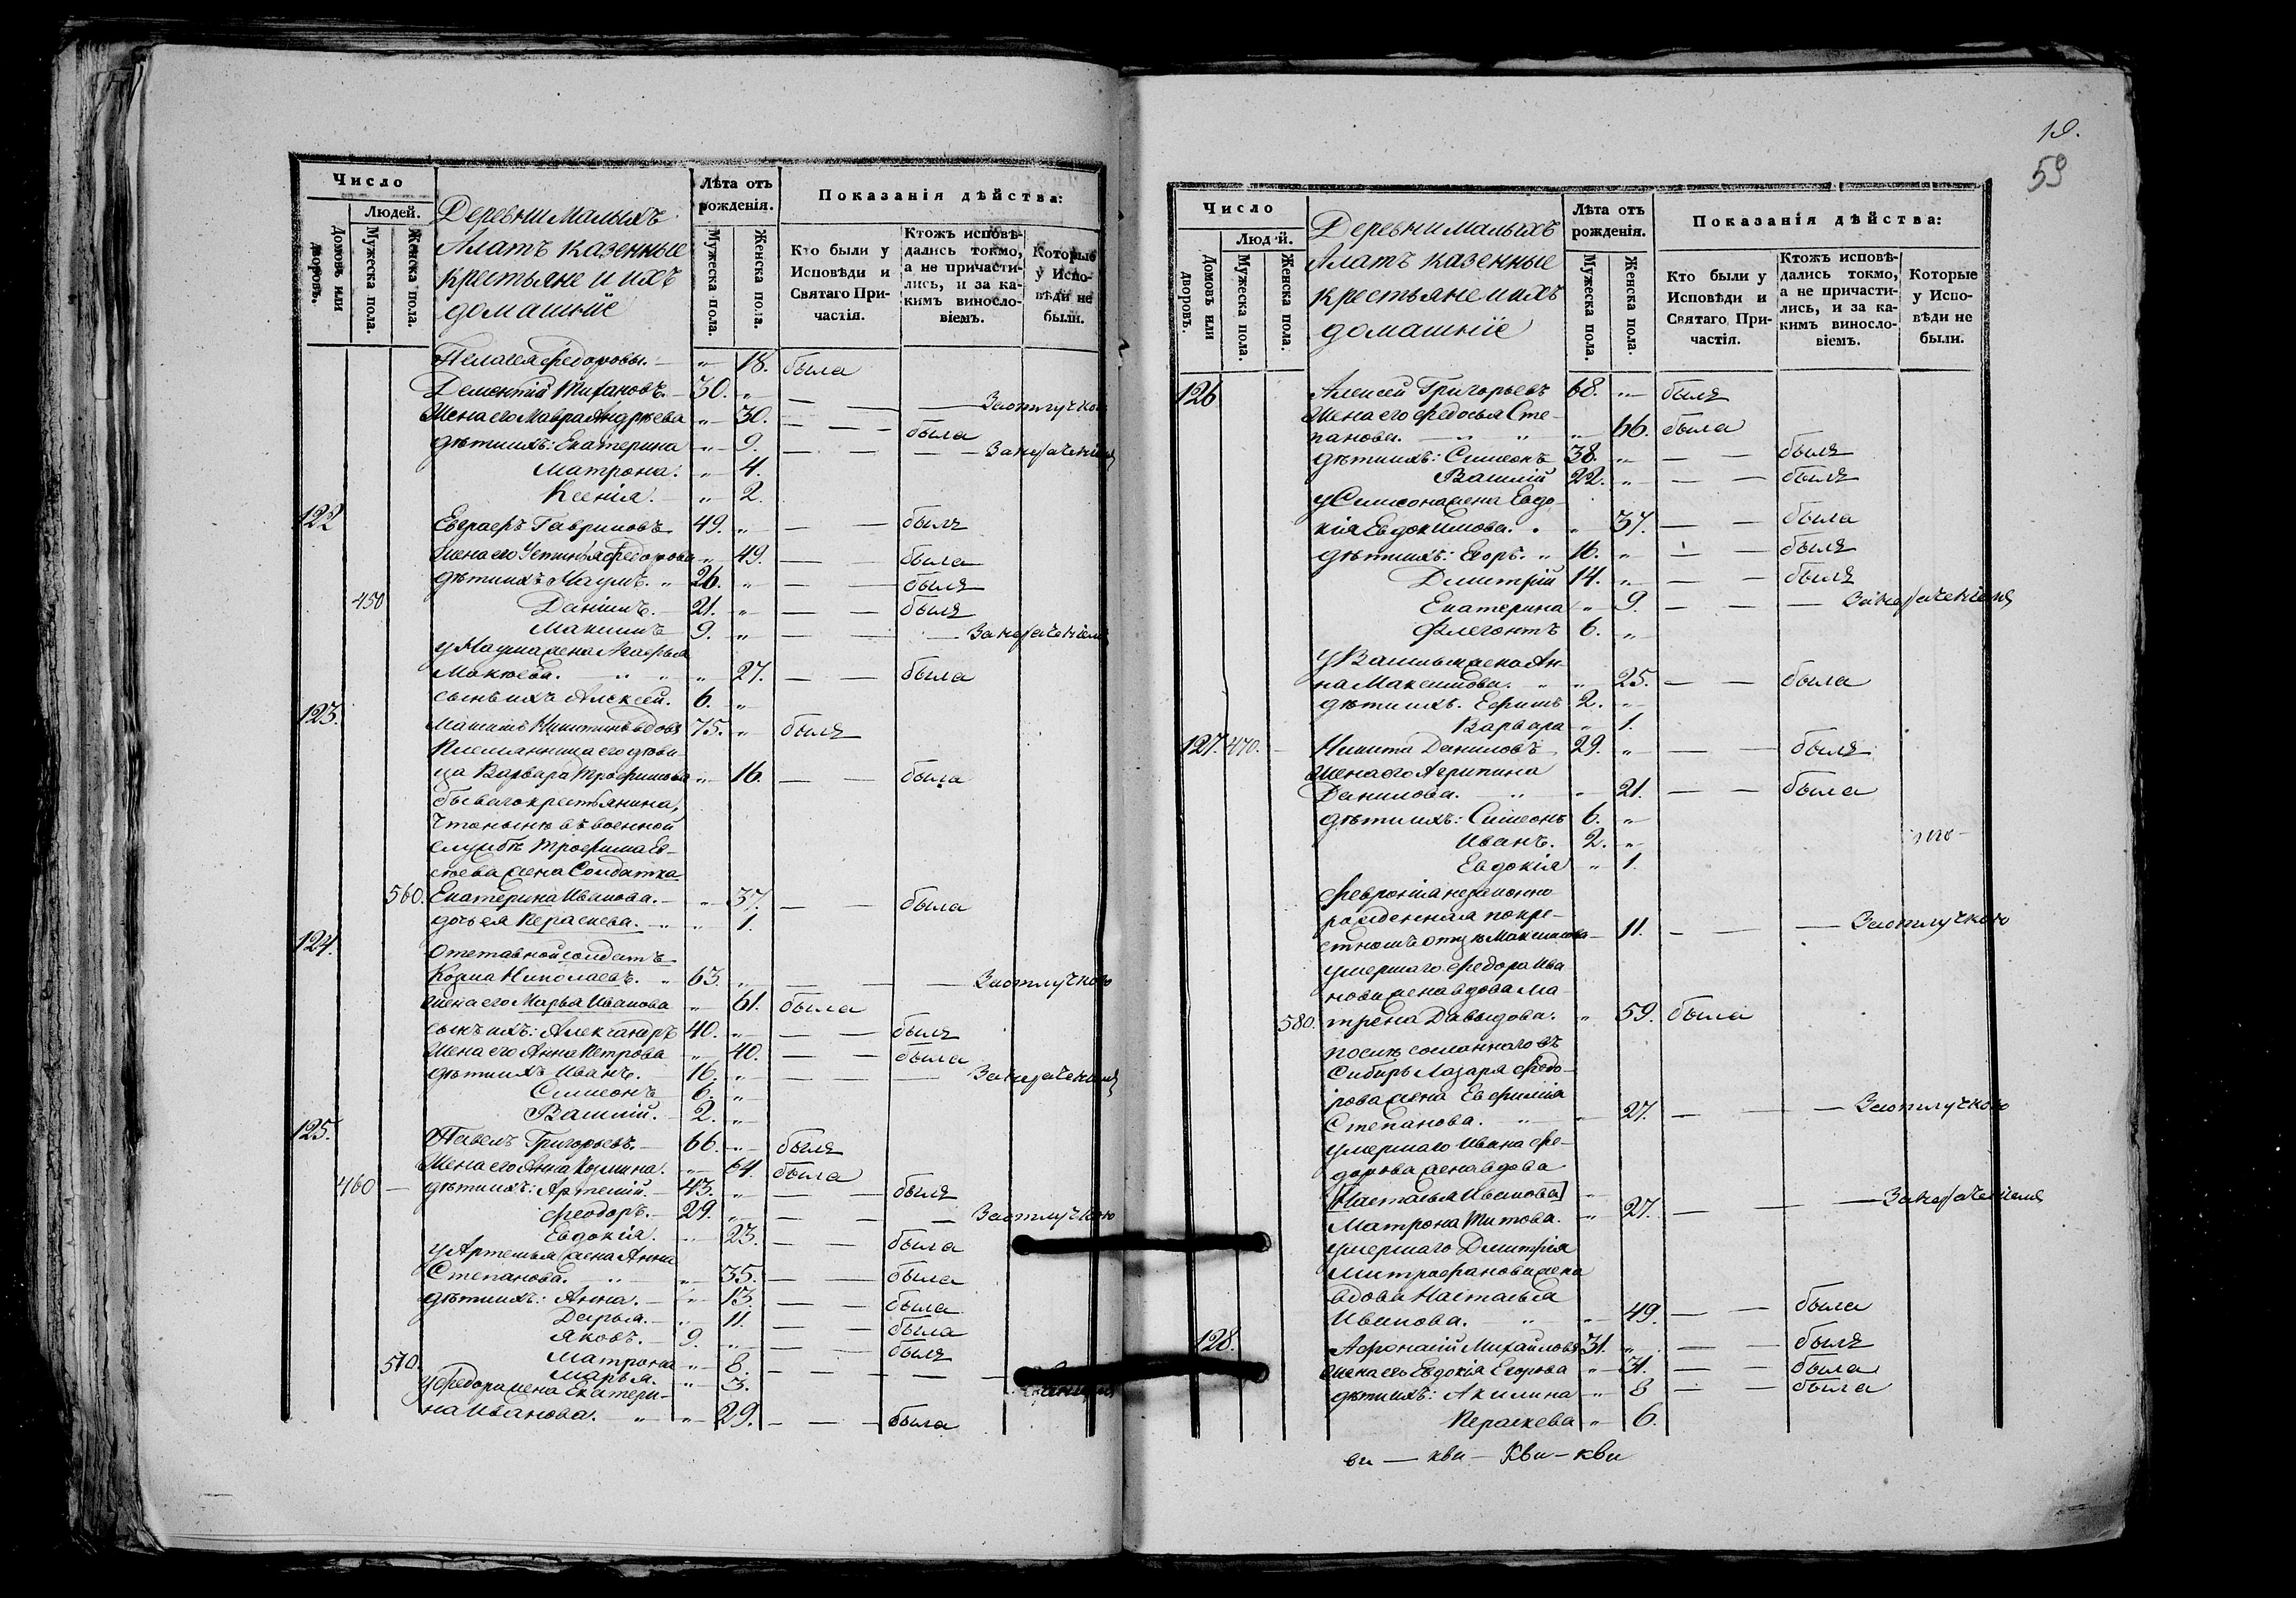 Число
Людей.
Домовъ или дворовъ.
Мужеска пола.
Женска пола.
Деревни Малыхъ
Алатъ казенные
крестьяне и ихъ
домашніе
Лѣта отъ рожденія.
Мужеска пола.
Женска пола.
Показанія дѣйства:
Кто были у Исповѣди и Святаго Причастія.
Ктожъ исповѣдались токмо, а не причастились, и за какимъ винословіемъ.
Которые у Исповѣди не были.
Пелагея Федоровы. — „ 18. была
Дементій 30. „ — — — За отлучкою
Жена его Мавра Андреева „ 30. — — — была
дѣти ихъ: Екатерина „ 9. — — — За нераченіемъ
Матрона. „ 4.
Ксенія. „ 2.
122 Евграфъ Гавриловъ 49. „ — — былъ
Жена его Устинья Федорова „ 49. — — была
дѣти ихъ Наумъ. „ 26. „ — — былъ
450 Даніилъ. 21. „ — — былъ
Максимъ 9. „ — — — За нераченіемъ
у Наума жена Агафья
Мокѣева. „ „ „ 27. — — была
сынъ ихъ Алексей. 6. „
123. Никитинъ вдовъ 75. „ былъ
Племянница его дѣви-
ца Варвара Трофимова „ 16. — — была
бывшаго крестьянина,
что нынѣ въ военной
службѣ Трофима Ев-
сѣева жена Солдатка
560. Екатерина Иванова. „ 37. — — была
дочь ея Параскева. „ „ 1.
124. Отставной солдатъ
Козма Николаевъ. „ 63. „ — — — За отлучкою
Жена его Марья Иванова „ 61. была
сынъ ихъ: Александръ 40. „ — — былъ
Жена его Анна Петрова „ 40. — — была
дѣти ихъ Иванъ. 16. „ — — — За нераченіемъ
Симеонъ 6. „
Василій. 2. „
125. Павелъ Григорьевъ. 66. „ былъ
Жена его Анна Козмина. „ 64. была
460 — дѣти ихъ: Артемій. 43. „ — — былъ
Феодоръ. 29. „ — — — За отлучкою
Евдокія. „ 23. — — была
у Артемья жена Анна
Степанова. „ „ 35. — — была
дѣти ихъ: Анна. „ 13. — — была
Дарья. „ 11. — — была
Яковъ. 9. „ — — былъ
570. Матрона „ 8. — — — —
Марья. „ 3.
у Федора жена Екатери-
на Иванова. „ „ 29. — — — была
19.
59
Число
Людей.
Домовъ или дворовъ.
Мужеска пола.
Женска пола.
Деревни Малыхъ
Алатъ казенные
крестьяне и ихъ
домашніе
Лѣта отъ рожденія.
Мужеска пола.
Женска пола.
Показанія дѣйства:
Кто были у Исповѣди и Святаго Причастія.
Ктожъ исповѣдались токмо, а не причастились, и за какимъ винословіемъ.
Которые у Исповѣди не были.
126 Алексей Григорьевъ 68. „ былъ
Жена его Федосья Сте-
панова. „ „ „ 66. была
дѣти ихъ: Симеонъ 38. „ — — былъ
Василій 22. „ — — былъ
у Симеона жена Евдо-
кія Евдокимова. „ „ 37. — — была
дѣти ихъ: Егоръ. „ 16. „ — — былъ
Димитрій 14. „ — — былъ
Екатерина „ 9. — — — За нераченіемъ
Флегонтъ 6. „
у Василья жена Ан-
на Максимова. „ „ 25. — — была
дѣти ихъ. Ефимъ 2. „
Варвара „ 1.
127. 470. — Никита Даниловъ 29. „ — — былъ
Жена его Агрипина
Данилова. „ „ 21. — — была
дѣти ихъ: Симеонъ 6. „
Иванъ. 2. „
Евдокія „ 1.
Февронія незаконно-
рожденная по кре-
стному отцу Максимова — 11. — — — За отлучкою
умершаго Федора Ива-
нова жена вдова Ма-
580. трена Давыдова. „ 59. была
сосланнаго въ
Сибирь Лазаря Федо-
рова жена Евфимія
Степанова. „ „ 27. — — — За отлучкою
умершаго Ивана Фе-
дорова жена вдова
[Настасья Иванова]
Матрона Титова. „ 27. — — — За нераченіемъ
умершаго Димитрія
Митрофанова жена
вдова Настасья
Иванова. „ „ 49. — — была
128. Афонасій Михайловъ 31. „ — — былъ
Жена его Евдокія Егорова „ 31. — — была
дѣти ихъ: Акилина „ 8 — — была
Параскева „ 6.
ви — кви — Кви — кви